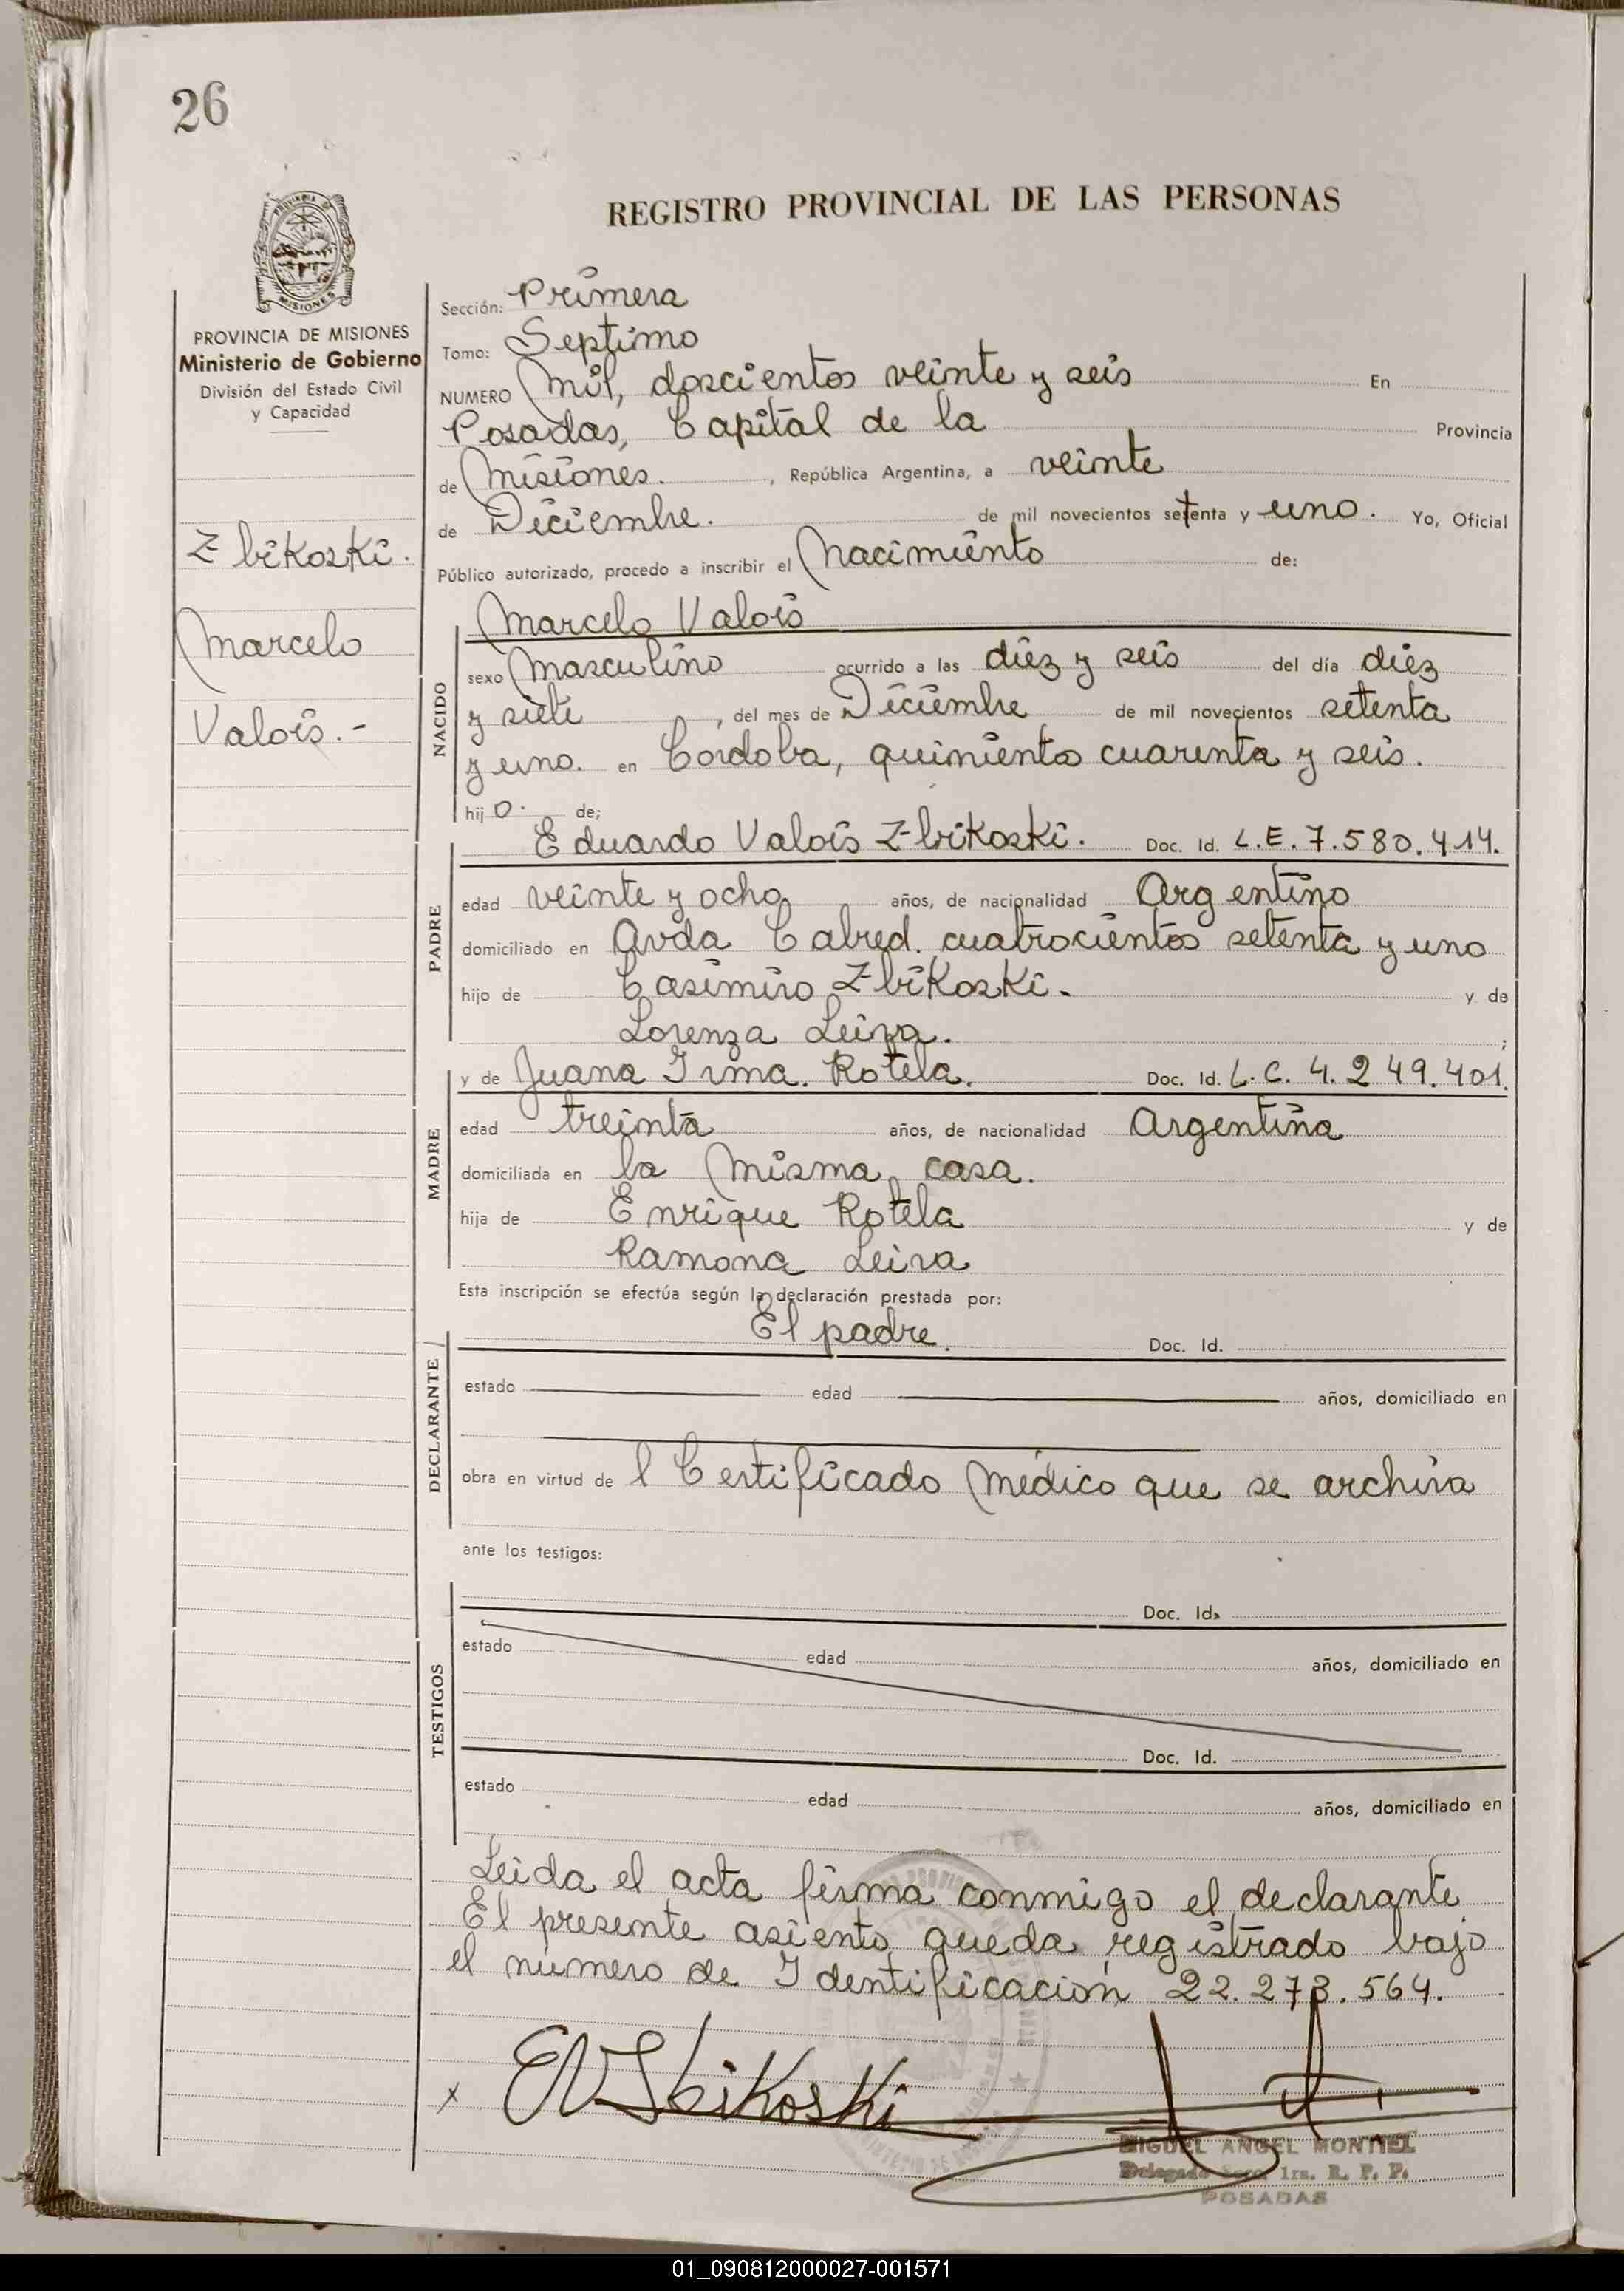 26
PROVINCIA DE MISIONES
REGISTRO PROVINCIAL DE LAS PERSONAS
PROVINCIA DE MISIONES
Ministerio de Gobierno
División del Estado Civil
y Capacidad
Zbikoski.
Marcelo
Valois.-
Sección: Primera
Tomo: Septimo
NUMERO Mil, doscientos veinte y seis En
Posadas, Capital de la Provincia
de Misiones. , República Argentina, a veinte
de Diciembre. de mil novecientos setenta y uno. Yo, Oficial
Público autorizado, procedo a inscribir el Nacimiento de:
Marcelo Valois
NACIDO
sexo Masculino ocurrido a las diez y seis del día diez
y siete , del mes de Diciembre de mil novecientos setenta
y uno. en Córdoba, quinientos cuarenta y seis.
hijo. de;
Eduardo Valois Zbikoski. Doc. Id. L.E. 7.580.414.
PADRE
edad veinte y ocho años, de nacionalidad Argentino
domiciliado en Avda Cabred. cuatrocientos setenta y uno
hijo de Casimiro Zbikoski. y de
Lorenza Leiva. ;
y de Juana Irma. Rotela. Doc. Id. L.C. 4.249.401.
MADRE
edad treinta años, de nacionalidad Argentina
domiciliada en la Misma casa.
hija de Enrique Rotela y de
Ramona Leiva
Esta inscripción se efectúa según la declaración prestada por:
El padre. Doc. Id.
DECLARANTE
estado edad años, domiciliado en
obra en virtud de l Certificado Médico que se archiva
ante los testigos:
Doc. Id.
TESTIGOS
estado edad años, domiciliado en
Doc. Id.
estado edad años, domiciliado en
Leida el acta firma conmigo el declarante
El presente asiento queda registrado bajo
el número de Identificación 22.273.564.
x EVZbikoski
MIGUEL ANGEL MONTIEL
Delegado Secc. 1ra. R. P. P.
POSADAS
01_090812000027-001571